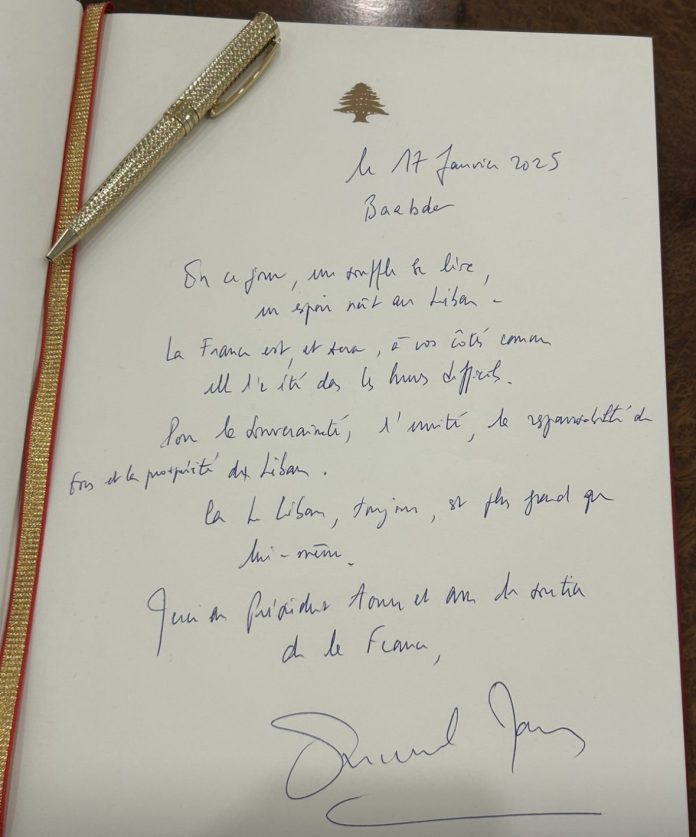 le 17 Janvier 2025
Baabda
En ce jour, un souffle se lève,
un espoir naît au Liban -
La France est, et sera, à vos côtés comme
elle l'a été dans les heures difficiles.
Pour la souveraineté, l'unité, la responsabilité de
tous et la prospérité du Liban.
Car le Liban, toujours, est plus grand que
lui-même.
Merci au Président Aoun et avec le soutien
de la France,